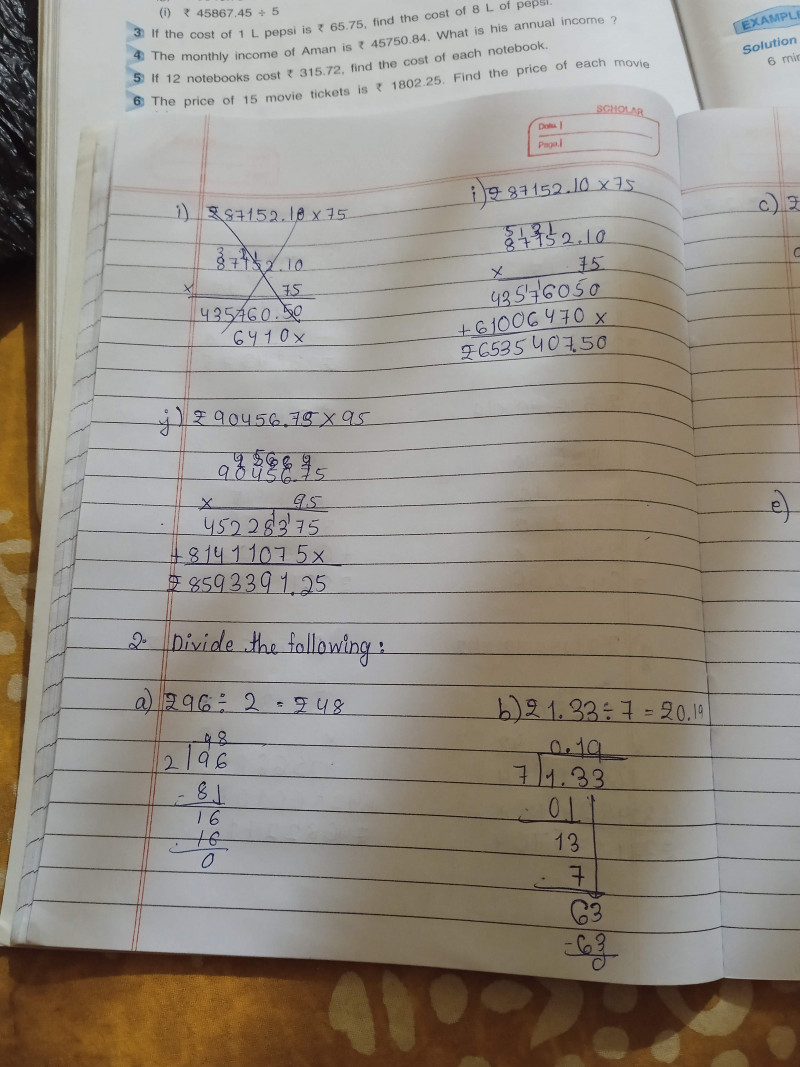 (i) ₹ 45867.45 ÷ 5
3 If the cost of 1 L pepsi is ₹ 65.75, find the cost of 8 L of pepsi.
4 The monthly income of Aman is ₹ 45750.84. What is his annual income ?
5 If 12 notebooks cost ₹ 315.72, find the cost of each notebook.
6 The price of 15 movie tickets is ₹ 1802.25. Find the price of each movie
EXAMPLE
Solution
6 min
SCHOLAR
Date
Page
i) ₹87152.10 x 75
87152.10
x 75
435760.50
6410x
i) ₹87152.10 x 75
87152.10
x 75
43576050
+61006470 x
₹6535407.50
j) ₹90456.75 x 95
90456.75
x 95
45228375
+81411075x
₹8593391.25
2. Divide the following :
a) ₹96 ÷ 2 = ₹48
48
2 96
- 8
16
- 16
0
b) ₹1.33 ÷ 7 = ₹0.19
0.19
7 1.33
- 0
13
- 7
63
-63
0
c) ₹
e)